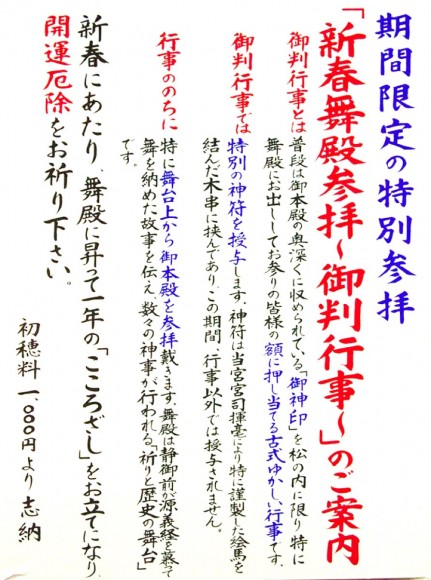 期間限定の特別参拝
「新春舞殿参拝～御判行事～」のご案内
御判行事とは
普段は御本殿の奥深くに収められている「御神印」を松の内に限り特に
舞殿にお出ししてお参りの皆様の額に押し当てる古式ゆかしい行事です。
御判行事では
特別の神符を授与します。神符は当宮宮司揮毫により特に謹製した絵馬を
結んだ木串に挟んであり、この期間、行事以外では授与されません。
行事ののちに
特に舞台上から御本殿を参拝戴きます。舞殿は静御前が源義経を慕って
舞を納めた故事を伝え、数々の神事が行われる「祈りと歴史の舞台」
です。
新春にあたり、舞殿に昇って一年の「こころざし」をお立てになり、
開運厄除をお祈り下さい。
初穂料 一、〇〇〇円より志納